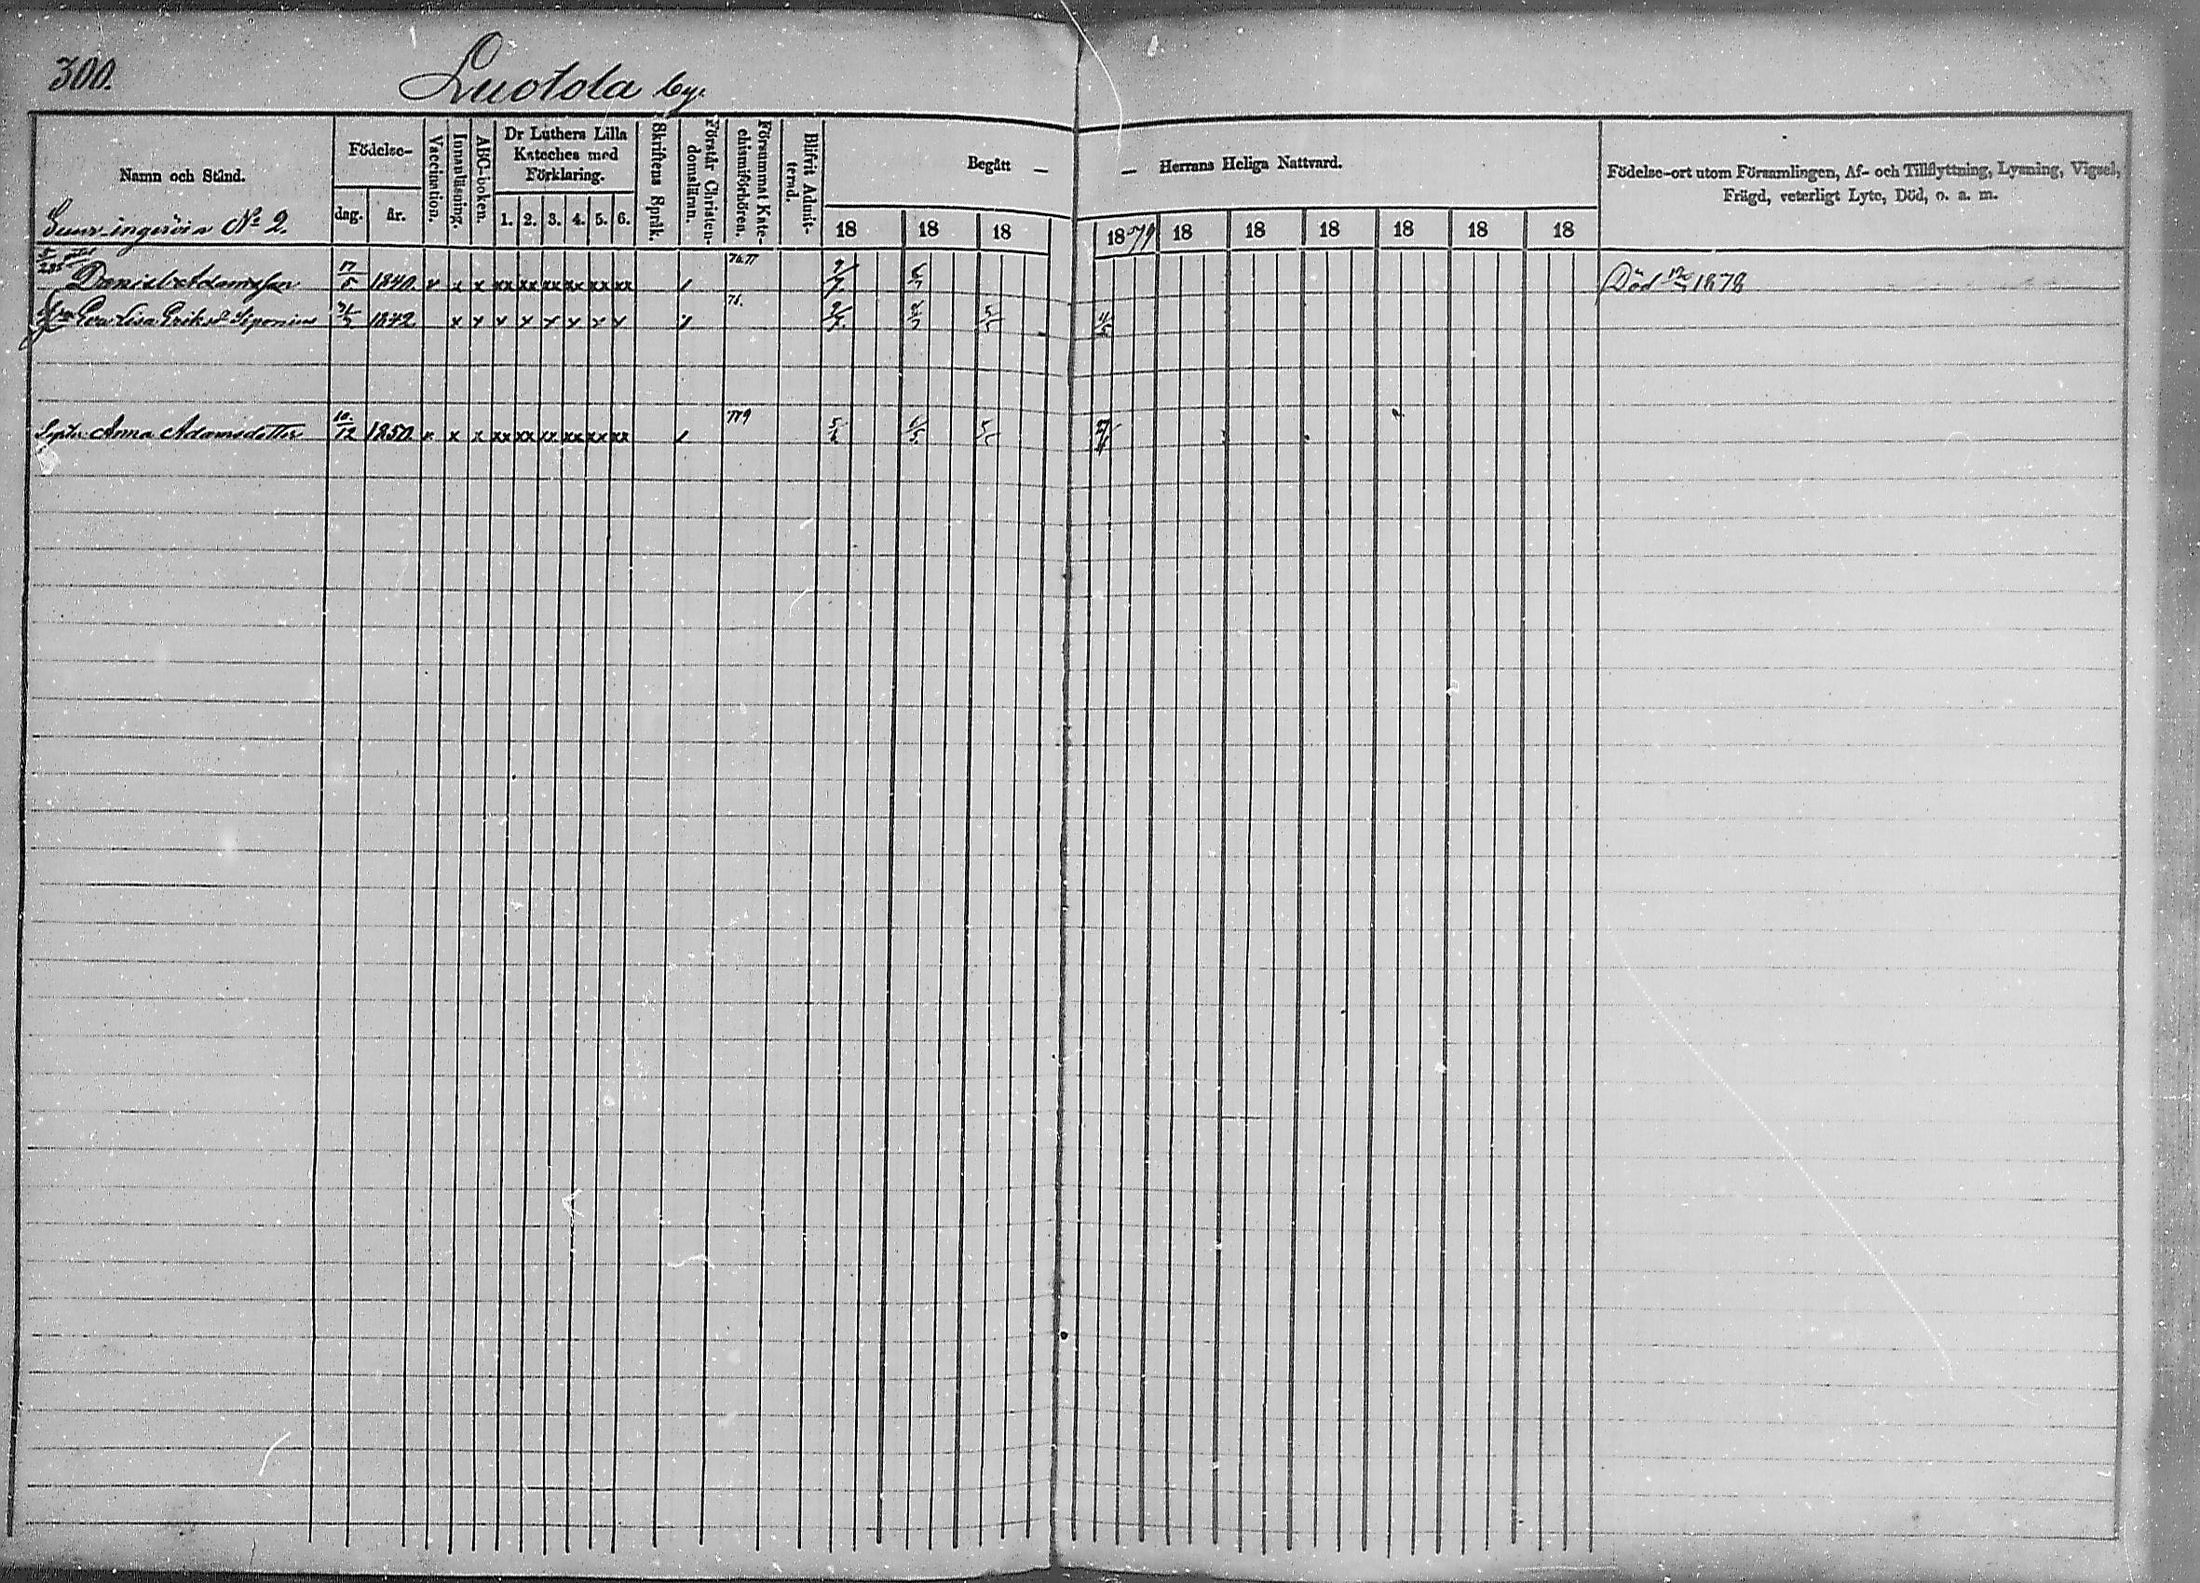 300.
Luotola by.
Namn och Stånd.
Födelse-
dag.
år.
Vaccination.
Innanläsning.
ABC-boken.
Dr Luthers Lilla
Kateches med
Förklaring.
1. 2. 3. 4. 5. 6.
Skriftens Språk.
Förstår Christen-
domsläran.
Försummat Kate-
chismiförhören.
Blifvit Admit-
terad.
Begått —
— Herrans Heliga Nattvard.
18 18 18 1879 18 18 18 18 18 18
Födelse-ort utom Församlingen, Af- och Tillflyttning, Lysning, Vigsel,
Frägd, veterligt Lyte, Död, o. a. m.
No 2.
Daniel Adamsson 1840. x x x xx xx xx xx xx xx 76.77 Död 1878
Lisa Eriksd. Seponius 1842 x x x x x x x x 76.
Anna Adamsdotter 10/12 1850. x x x xx xx xx xx xx xx 779